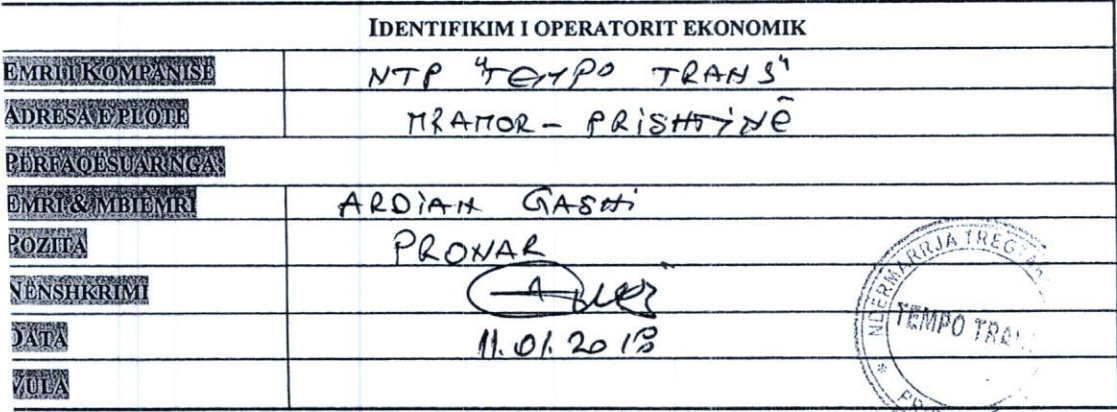 IDENTIFIKIM I OPERATORIT EKONOMIK
EMRI I KOMPANISË NTP "TEMPO TRANS"
ADRESA E PLOTË MRAMOR - PRISHTINË
PËRFAQËSUAR NGA:
EMRI & MBIEMRI ARDIAN GASHI
POZITA PRONAR
NËNSHKRIMI
DATA 11.01.2018
VULA
NDERMARRJA TREGTA
TEMPO TRA